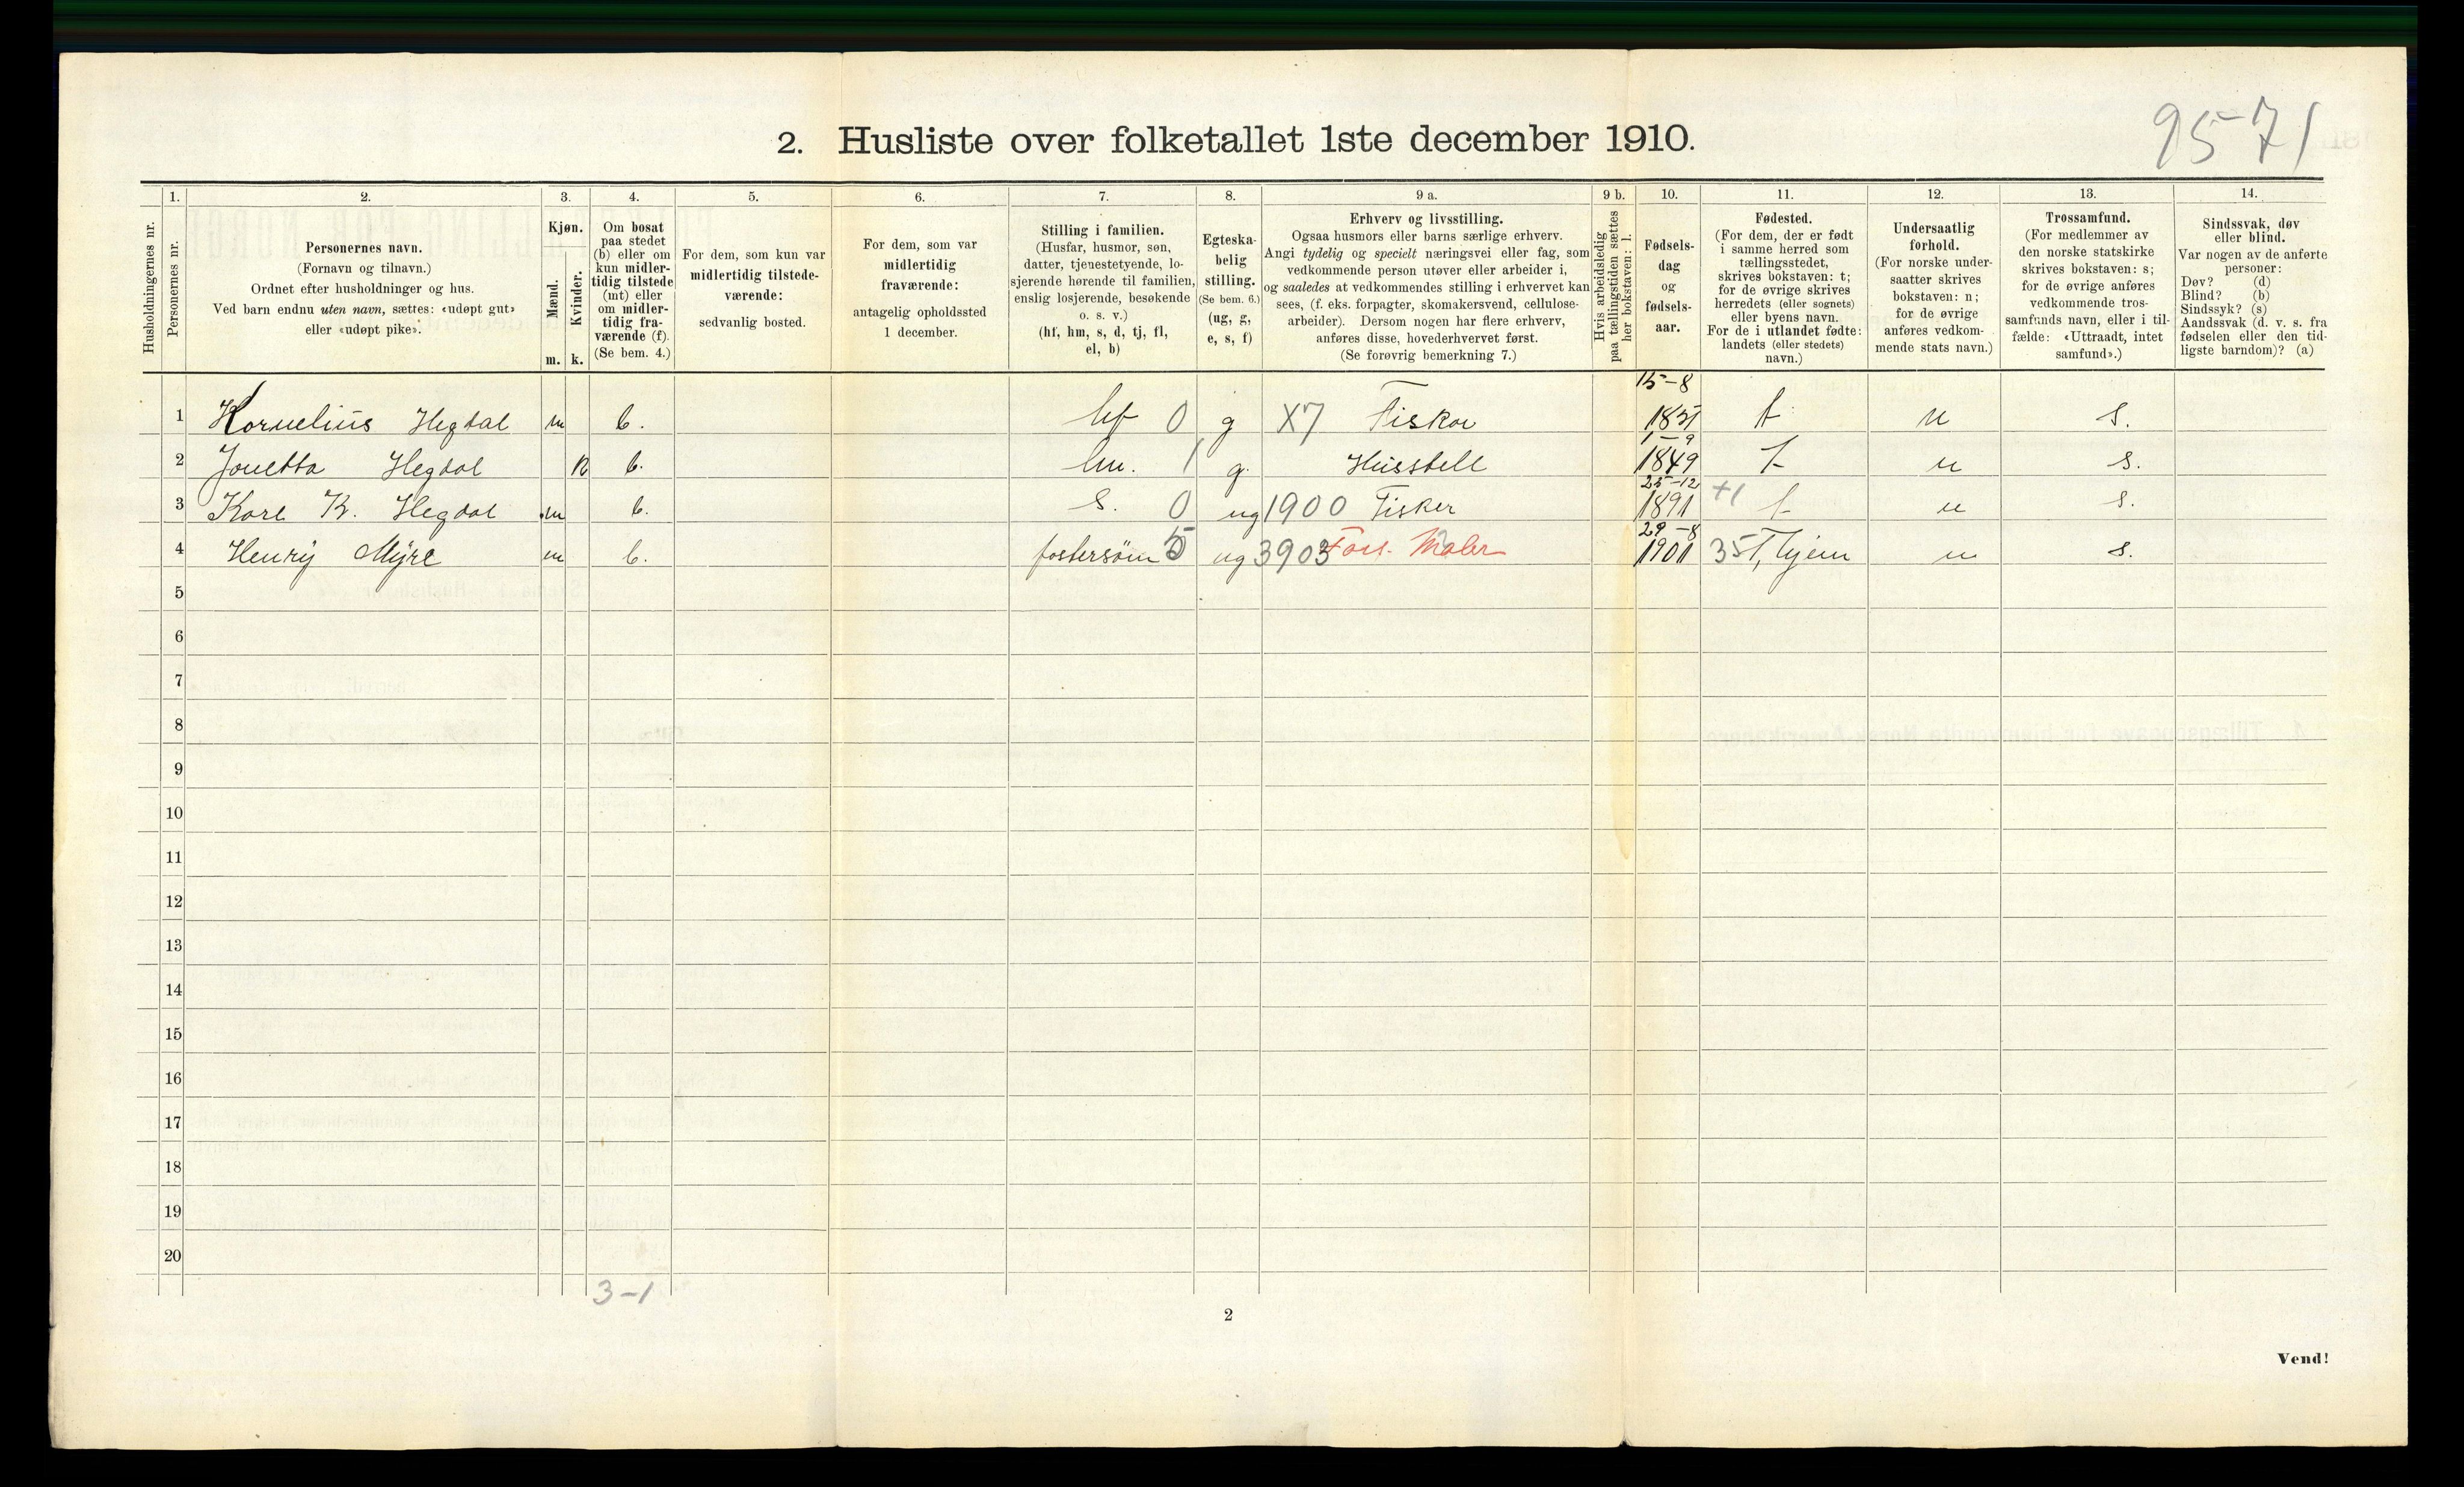 95-71
2. Husliste over folketallet 1ste december 1910.
1. 2. 3. 4. 5. 6. 7. 8. 9 a. 9 b. 10. 11. 12. 13. 14.
Husholdningernes nr.
Personernes nr.
Personernes navn.
(Fornavn og tilnavn.)
Ordnet efter husholdninger og hus.
Ved barn endnu uten navn, sættes: «udøpt gut»
eller «udøpt pike».
Kjøn.
Mænd.
Kvinder.
m. k.
Om bosat
paa stedet
(b) eller om
kun midler-
tidig tilstede
(mt) eller
om midler-
tidig fra-
værende (f).
(Se bem. 4.)
For dem, som kun var
midlertidig tilstede-
værende:
sedvanlig bosted.
For dem, som var
midlertidig
fraværende:
antagelig opholdssted
1 december.
Stilling i familien.
(Husfar, husmor, søn,
datter, tjenestetyende, lo-
sjerende hørende til familien,
enslig losjerende, besøkende
o. s. v.)
(hf, hm, s, d, tj, fl,
el, b)
Egteska-
belig
stilling.
(Se bem. 6.)
(ug, g,
e, s, f)
Erhverv og livsstilling.
Ogsaa husmors eller barns særlige erhverv.
Angi tydelig og specielt næringsvei eller fag, som
vedkommende person utøver eller arbeider i,
og saaledes at vedkommendes stilling i erhvervet kan
sees, (f. eks. forpagter, skomakersvend, cellulose-
arbeider). Dersom nogen har flere erhverv,
anføres disse, hovederhvervet først.
(Se forøvrig bemerkning 7.)
Hvis arbeidsledig
paa tællingstiden sættes
her bokstaven: l.
Fødsels-
dag
og
fødsels-
aar.
Fødested.
(For dem, der er født
i samme herred som
tællingsstedet,
skrives bokstaven: t;
for de øvrige skrives
herredets (eller sognets)
eller byens navn.
For de i utlandet fødte:
landets (eller stedets)
navn.)
Undersaatlig
forhold.
(For norske under-
saatter skrives
bokstaven: n;
for de øvrige
anføres vedkom-
mende stats navn.)
Trossamfund.
(For medlemmer av
den norske statskirke
skrives bokstaven: s;
for de øvrige anføres
vedkommende tros-
samfunds navn, eller i til-
fælde: «Uttraadt, intet
samfund».)
Sindssvak, døv
eller blind.
Var nogen av de anførte
personer:
Døv? (d)
Blind? (b)
Sindssyk? (s)
Aandssvak (d. v. s. fra
fødselen eller den tid-
ligste barndom)? (a)
15-8
1 Kornelius Hegdal m b. hf 0 g X7 Fisker 1851 t n s.
1-9
2 Jonetta Hegdal k b. hm. 1 g. Husstell 1849 t n s.
25-12
3 Kare K. Hegdal m b. s. 0 ug 1900 Fisker 1891 +1 t n s.
29-8
4 Henry Myre m b. fostersøn 5 ug 3903 Fors. Maler 1901 35 n s.
5
6
7
8
9
10
11
12
13
14
15
16
17
18
19
20
3-1
2
Vend!